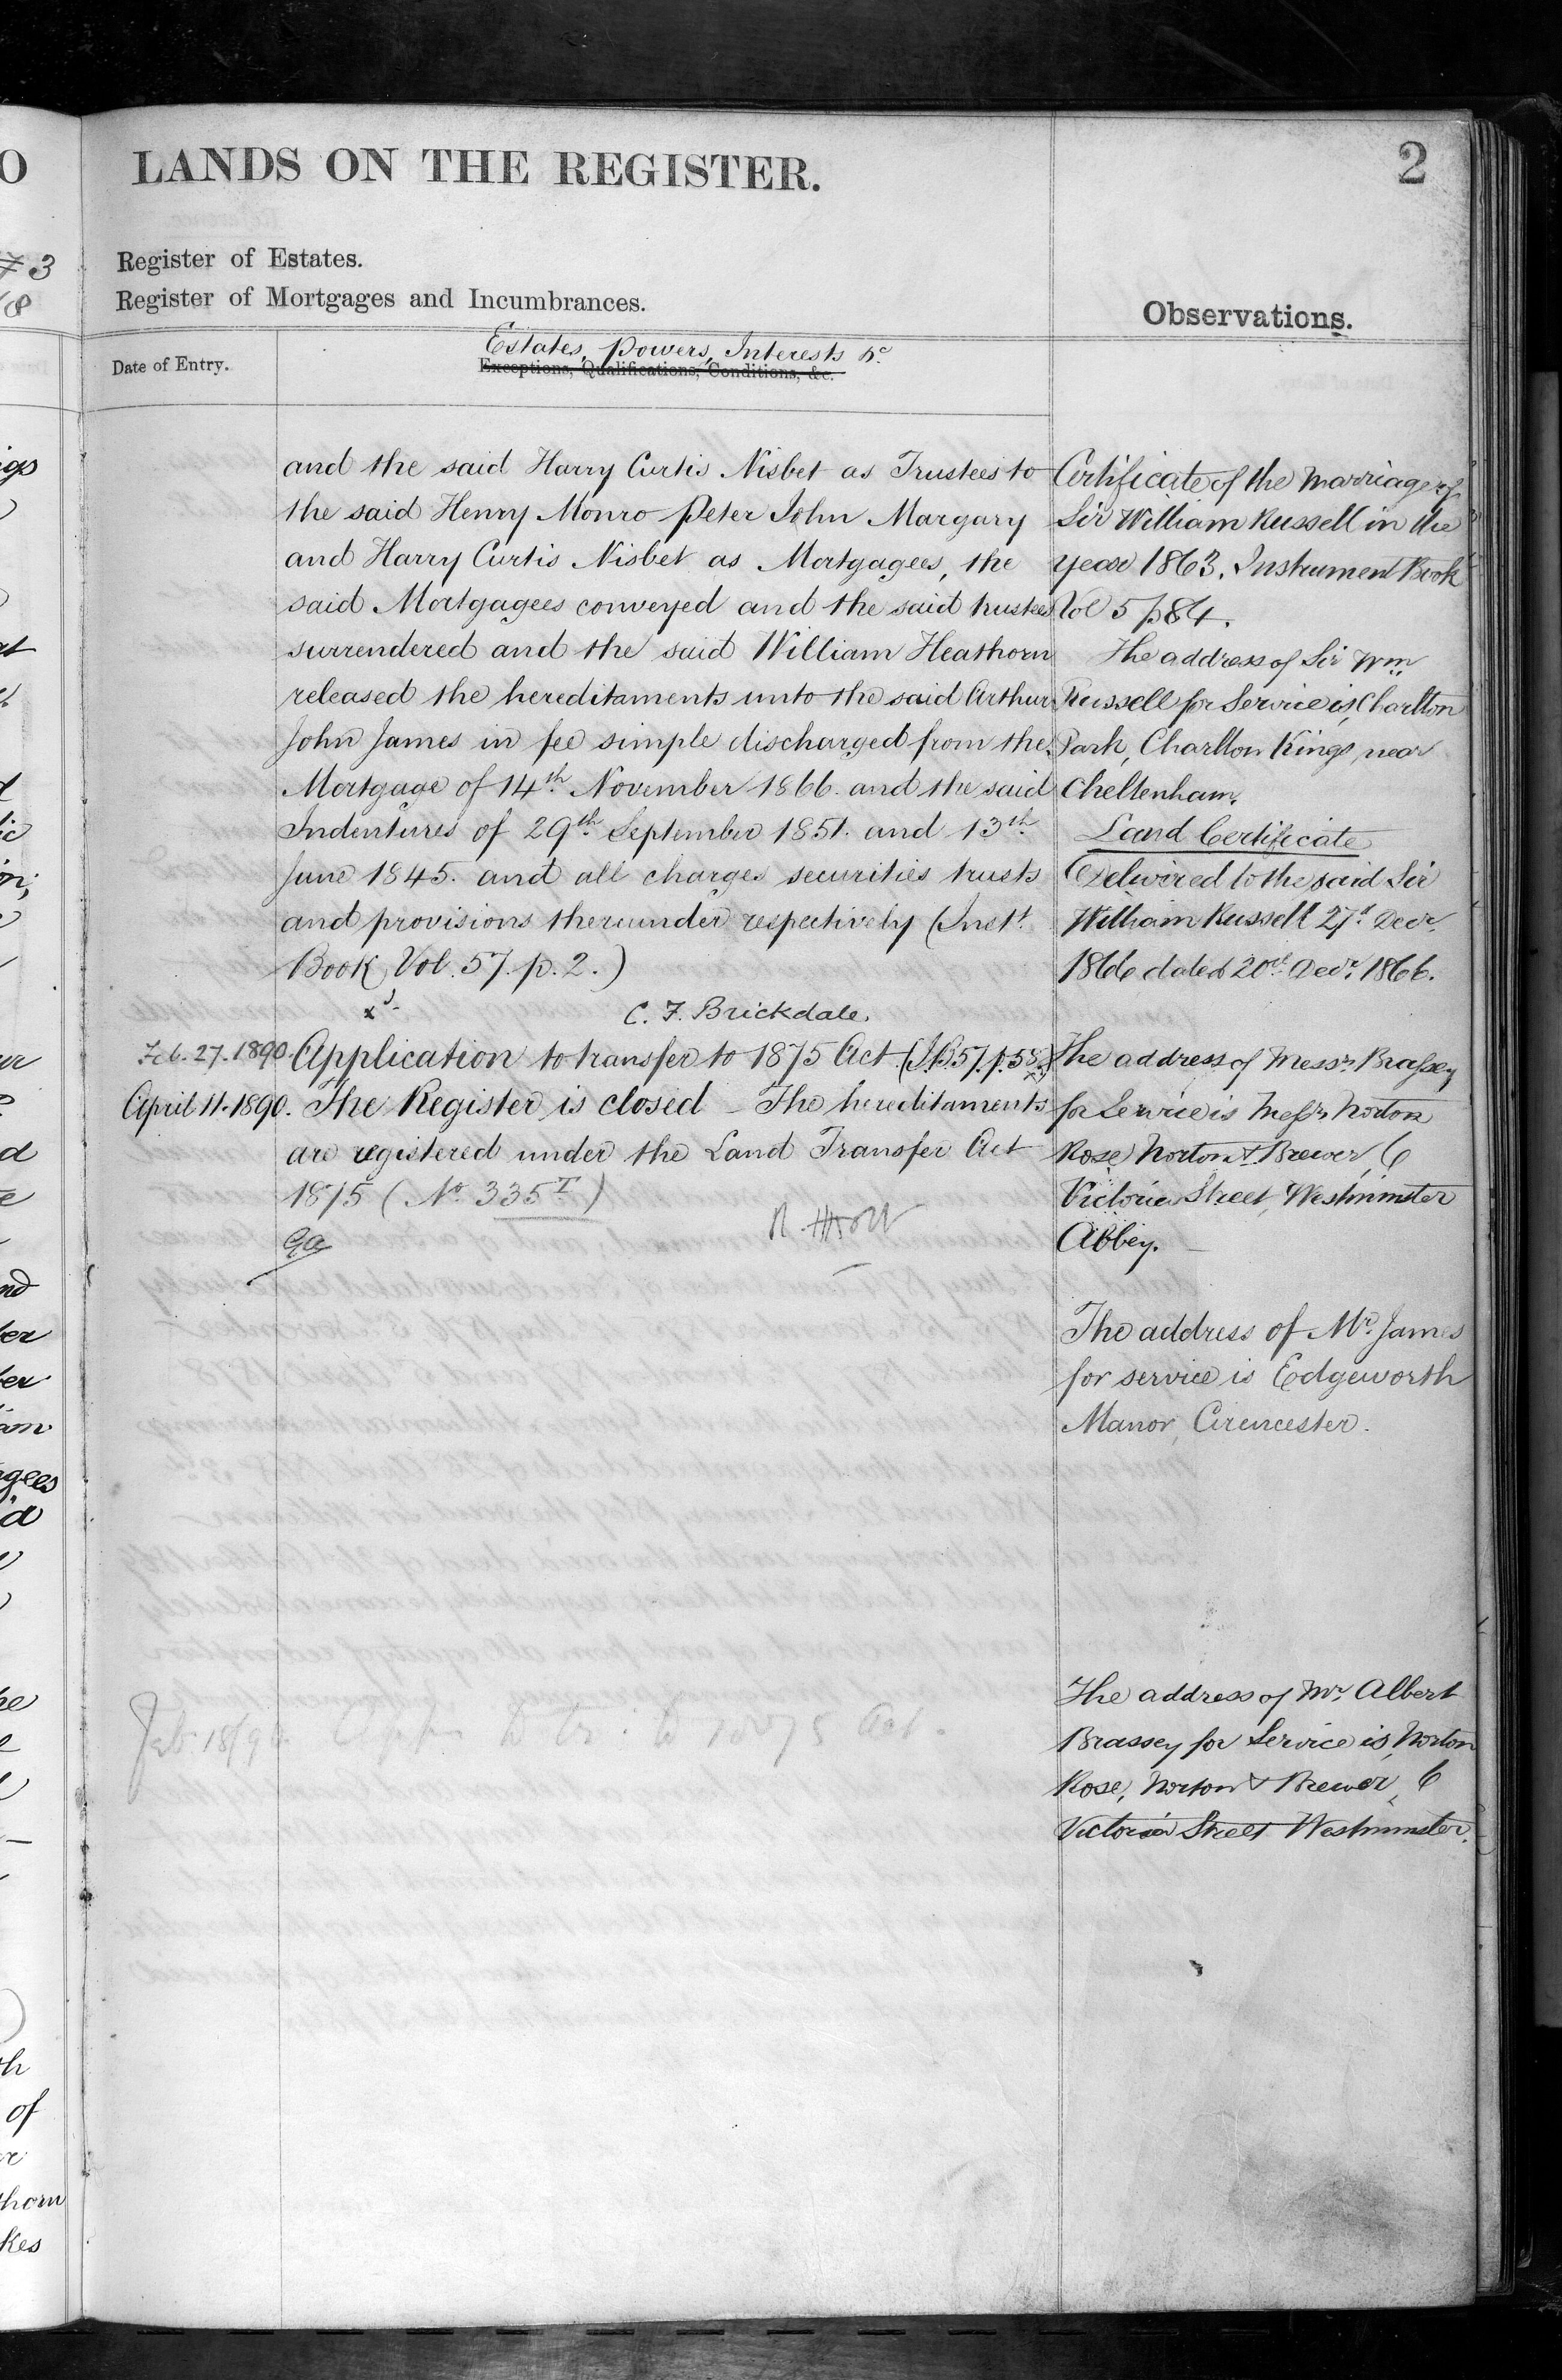 LANDS ON THE REGISTER.
2
Register of Estates.
Register of Mortgages and Incumbrances.
Observations.
Date of Entry.
Estates, Powers, Interests &c
Exceptions, Qualifications, Conditions, &c.
and the said Harry Curtis Nisbet as Trustees to
the said Henry Monro Peter John Margary
and Harry Curtis Nisbet as Mortgagees, the
said Mortgagees conveyed and the said trustees
surrendered and the said William Heathorn
released the hereditaments unto the said Arthur
John James in fee simple discharged from the
Mortgage of 14th November 1866. and the said
Indentures of 29th September 1851. and 13th
June 1845. and all charges securities trusts
and provisions thereunder respectively (Inst.
Book Vol. 57. p. 2.)
C. F. Brickdale.
Feb. 27. 1890. Application to transfer to 1875 Act (I.B. 57. p. 58.)
April 11. 1890. The Register is closed – The hereditaments
are registered under the Land Transfer Act
1875 (No. 335 I)
Certificate of the Marriage of
Sir William Russell in the
year 1863. Instrument Book
Vol 5 p 84.
The address of Sir Wm
Russell for Service is, Charlton
Park, Charlton Kings, near
Cheltenham.
Land Certificate
Delivered to the said Sir
William Russell 27th Decr.
1866 dated 20th Decr. 1866.
The address of Messrs Brassey
for Service is Messrs Norton
Rose Norton & Brewer, 6
Victoria Street, Westminster
Abbey.
The address of Mr. James
for service is Edgeworth
Manor, Cirencester.
The address of Mr. Albert
Brassey for Service is, Norton
Rose, Norton & Brewer, 6
Victoria Street Westminster.
to 1875 Act.